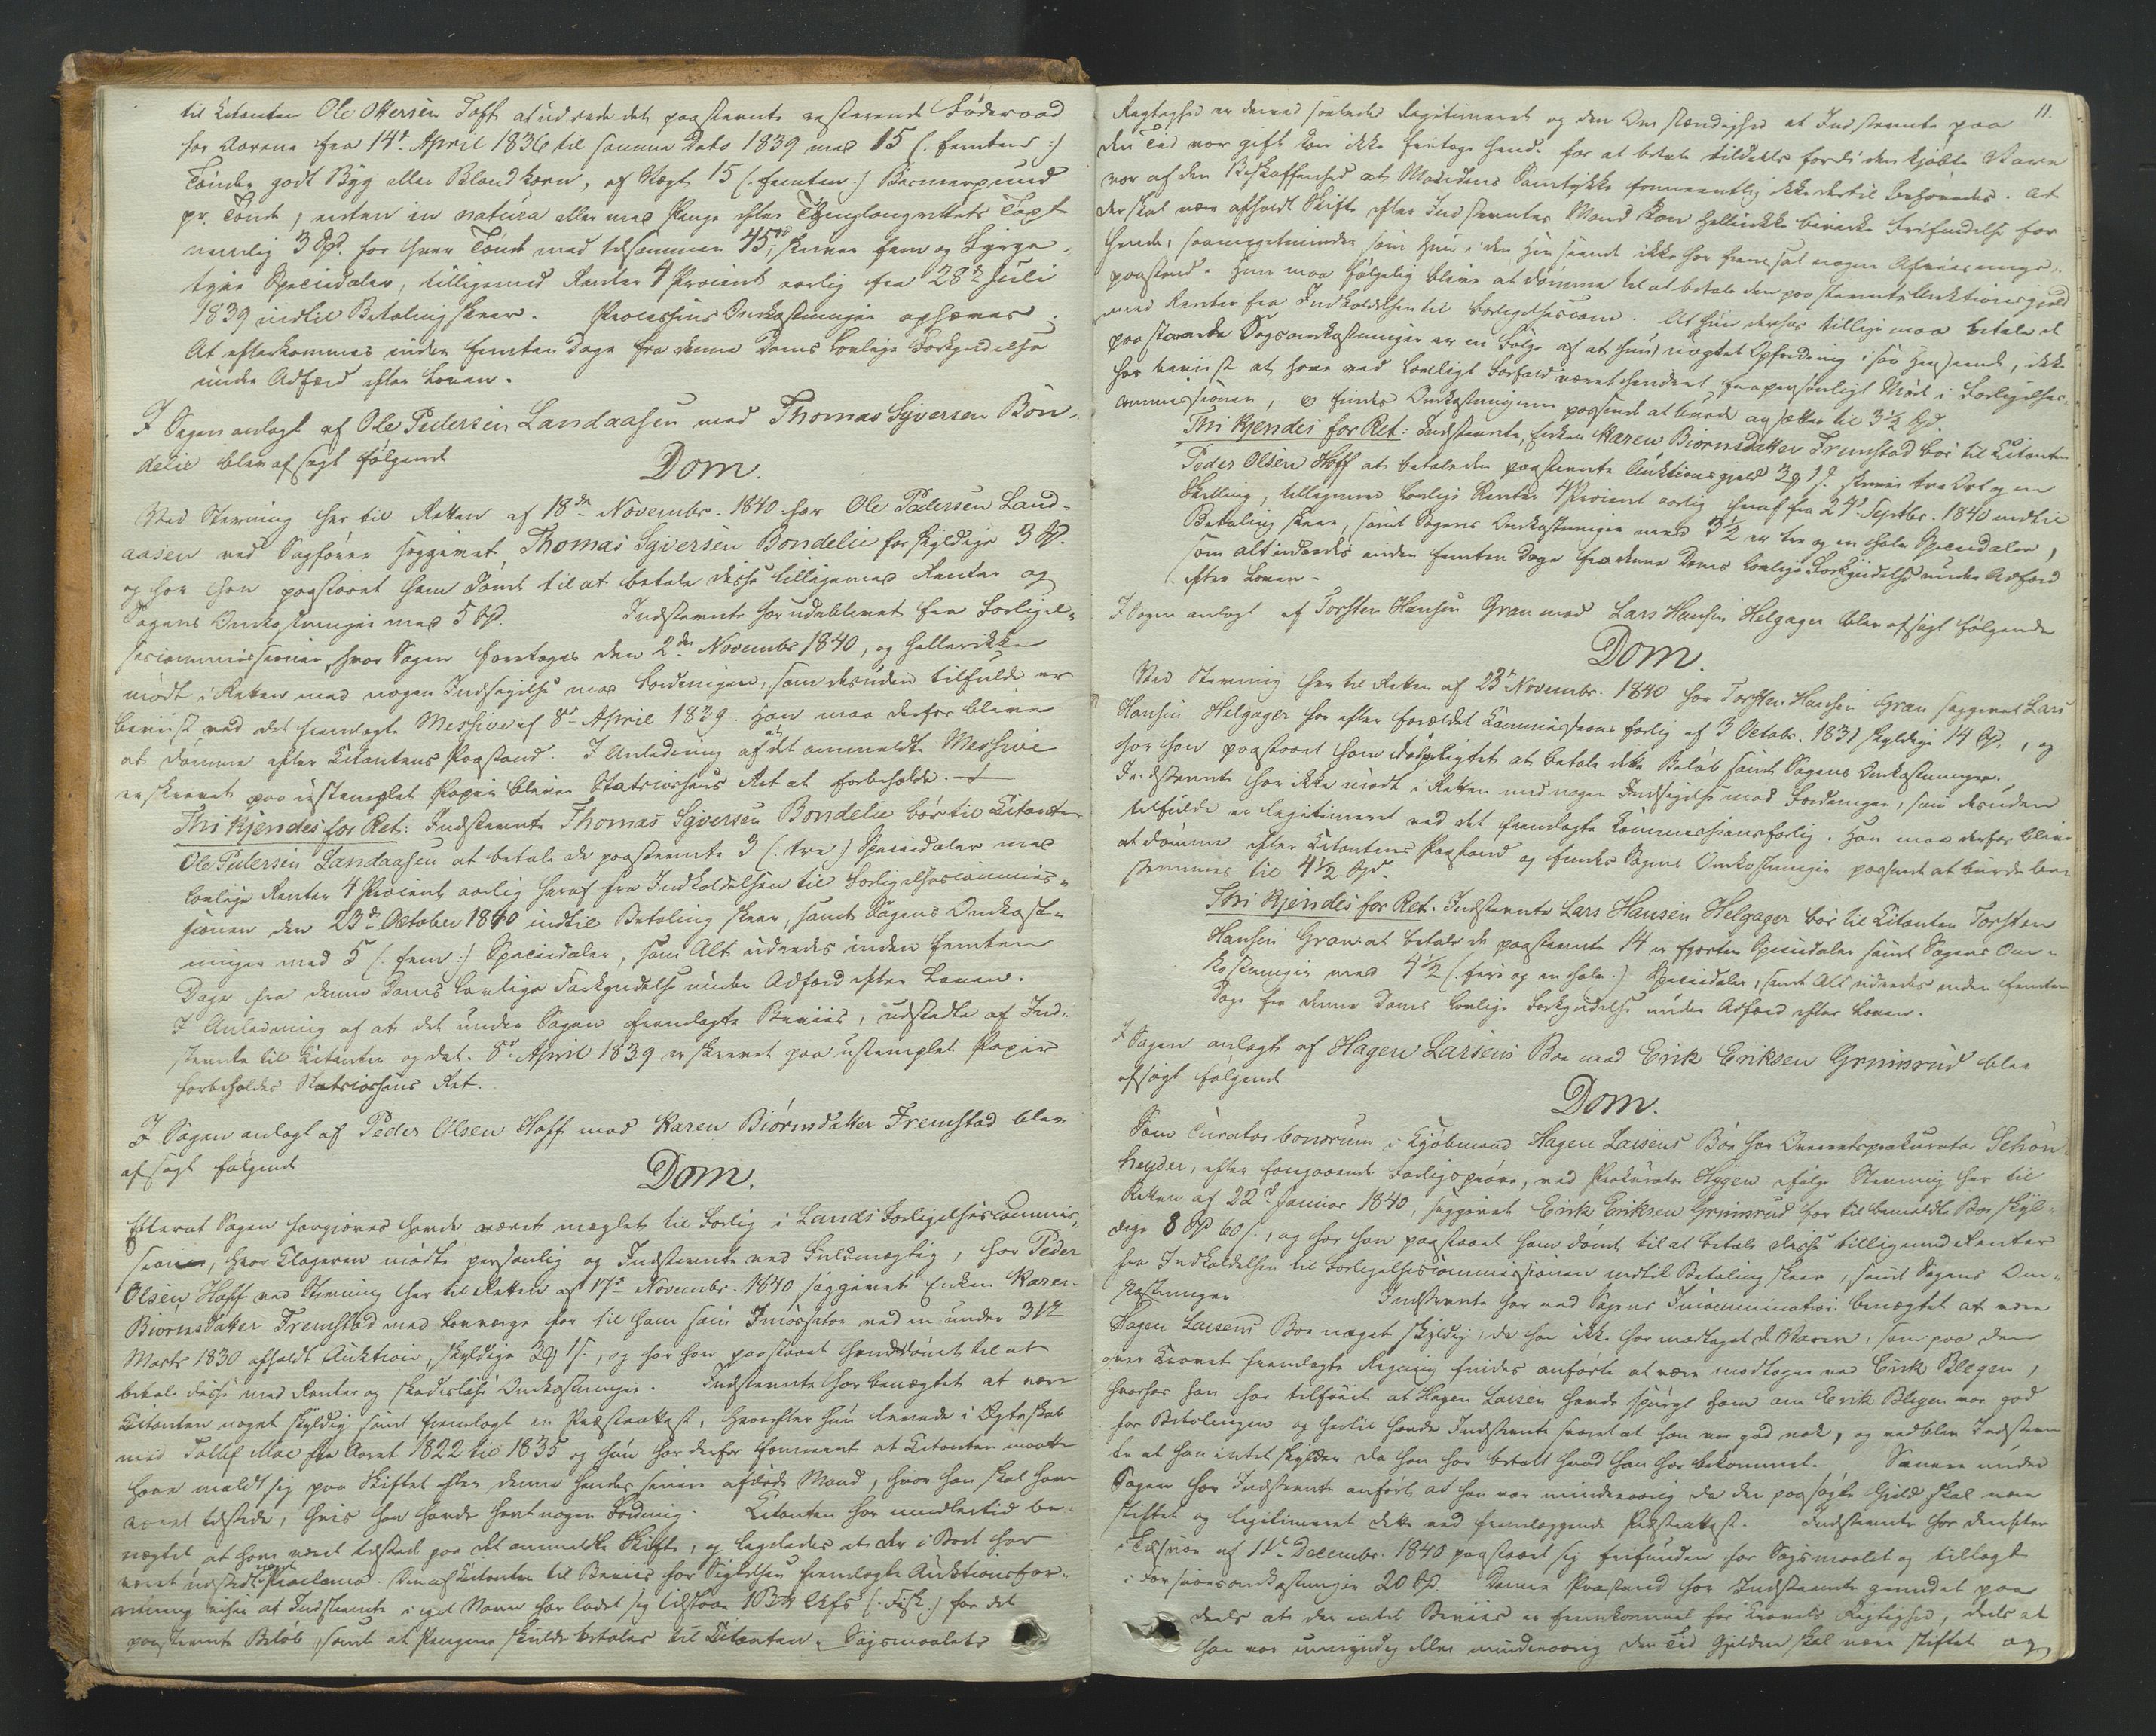 til Citanten Ole Ottersen Toft at udrede det paastevnte resterende Föderaad
for Aarene fra 14d. April 1836 til samme Dato 1839 med 15 (: femten :)
Tönder godt Byg eller Blandkorn, af Vægt 15 (: femten :) Bismerpund
pr. Tönde, enten in natura eller med Penge efter Thinglaugrettets Taxt
nemlig 3 Spd. for hver Tönde med tilsammen 45, skriver fem og Fyrge-
tyve Speciedaler, tilligemed Renter 4 Procent aarlig fra 28d. Juli
1839 indtil Betaling skeer. Processens Omkostninger ophæves.
At efterkommes inden femten Dage fra denne Doms lovlige Forkyndelse
under Adfærd efter Loven.
I Sagen anlagt af Ole Pedersen Landaasen mod Thomas Syversen Bon-
delie blev afsagt følgende
Dom.
Ved Stevning her til Retten af 18de Novembr. 1840 har Ole Pedersen Land-
aasen ved Sagförer saggivet Thomas Syversen Bondelie for skyldige 3 Spd.
og har han paastaaet ham dömt til at betale disse tilligemed Renter og
Sagens Omkostninger med 5 Spd. Indstevnte har udeblevet fra Forligel-
sescommissionen, hvor Sagen foretoges den 2den Novembr 1840, og hellerikke
mödt i Retten med nogen Indsigelse mod Fordringen, som desuden tilfulde er
beviist ved det fremlagte Missive af 8d. April 1839. Han maa derfor blive
at dömme efter Citantens Paastand. I Anledning af at det anmeldte Missive
er skrevet paa ustemplet Papir bliver Statscassens Ret at forbeholde.
Thi Kjendes for Ret: Indstevnte Thomas Syversen Bondelie bör til Citanten
Ole Pedersen Landaasen at betale de paastevnte 3 (: tre :) Speciedaler med
lovlige Renter 4 Procent aarlig heraf fra Indkaldelsen til Forligelsescommis-
sionen den 23d. October 1840 indtil Betaling skeer, samt Sagens Omkost-
ninger med 5 (: fem :) Speciedaler, som Alt udredes inden femten
Dage fra denne Doms lovlige Forkyndelse under Adfærd efter Loven.
I Anledning af at det under Sagen fremlagte Beviis, udstedte af Ind-
stevnte til Citanten og dat. 8d. April 1839 er skrevet paa ustemplet Papir
forbeholdes Statscassens Ret.
I Sagen anlagt af Peder Olsen Hoff mod Karen Biörnsdatter Fremstad blev
afsagt følgende
Dom.
Efterat Sagen forgjeves havde været mæglet til Forlig i Lands Forligelsescommis-
sion, hvor Klageren mödte personlig og Indstevnte ved Fuldmægtig, har Peder
Olsen Hoff ved Stevning her til Retten af 17d. Novembr. 1840 saggivet Enken Karen
Biörnsdatter Fremstad med Laugværge for til ham som Incassator ved en under 31te
Marts 1830 afholdt Auktion, skyldige 3 ort 1 s., og har han paastaaet hende dömt til at
betale disse med Renter og skadeslöse Omkostninger. Indstevnte har benægtet at være
Citanten noget skyldig samt fremlagt en Præsteattest, hvorefter hun levede i Ægteskab
med Tollef Moe fra Aaret 1822 til 1835 og hun har derfor formeent at Citanten maatte
have meldt sig paa Skiftet efter denne hendes senere afdöde Mand, hvor han skal have
været tilstede, hvis han havde havt nogen Fordring. Citanten har imidlertid be-
nægtet at have været tilstede paa det anmeldte Skifte, og ligeledes at der i Boet har
været udstedt Proclama. Den af Citanten til Beviis for Sigtelsen fremlagte Auktionsfor-
retning viser at Indstevnte i eget Navn har ladet sig tilslaae (: Fisk :) for det
paastevnte Belöb, samt at Pengene skulde betales til Citanten. Sagsmaalets
11.
Rigtighed er derved saaledes legitimeret og den Omstændighed at Indstevnte paa
den Tid var gift kan ikke fritage hende for at betale tildeels fordi den kjöbte Vare
var af den Beskaffenhed at Mandens Samtykke formeentlig ikke dertil behövedes. At
der skal være afholdt Skifte efter Indstevntes Mand kan hellerikke bevirke Frifindelse for
hende, saameget mindre som hun i den Henseende ikke har fremsat nogen Afviisnings-
paastand. Hun maa følgelig blive at dömme til at betale den paastevnte Auktionsgjeld
med Renter fra Indkaldelsen til Forligelsescom. At hun derfor tillige maa betale de
paastevnte Sagsomkostninger er en Følge af at hun, uagtet Opfordring i saa Henseende, ikke
har beviist at have ved lovligt Forfald været hindret fra personligt Möde i Forligelses-
commissionen, og findes Omkostningerne passende at burde ansættes til 3½ Spd.
Thi Kjendes for Ret: Indstevnte, Enken Karen Biornsdatter Fremstad bör til Citanten
Peder Olsen Hoff at betale den paastevnte Auktionsgjeld 3 ort 1 s. skriver tre Ort og en
Skilling, tilligemed lovlige Renter 4 Procent aarlig heraf fra 24d. Septbr. 1840 indtil
Betaling skeer, samt Sagens Omkostninger med 3½ er tre og en halv Speciedaler,
som alt udredes inden femten Dage fra denne Doms lovlige Forkyndelse under Adfærd
efter Loven.
I Sagen anlagt af Torsten Hansen Gran mod Lars Hansen Helgager blev afsagt følgende
Dom.
Ved Stevning her til Retten af 23d. Novembr. 1840 har Torsten Hansen Gran saggivet Lars
Hansen Helgager for efter forældet Commissions forlig af 3 Octobr. 1831 skyldige 14 Spd., og
har han paastaaet ham tilpligtet at betale dette Belöb samt Sagens Omkostninger.
Indstevnte har ikke mödt i Retten med nogen Indsigelse mod Fordringen, som desuden
tilfulde er legitimeret ved det fremlagte Commissionsforlig. Han maa derfor blive
at dömme efter Citantens Paastand og findes Sagens Omkostninger passende at burde be-
stemmes til 4½ Spd.
Thi Kjendes for Ret: Indstevnte Lars Hansen Helgager bör til Citanten Torsten
Hansen Gran at betale de paastevnte 14 er fjorten Speciedaler samt Sagens Om-
kostninger med 4½ (: fire og en halv :) Speciedaler, samt Alt udredes inden femten
Dage fra denne Doms lovlige Forkyndelse under Adfærd efter Loven.
I Sagen anlagt af Hagen Larsens Boe mod Erik Eriksen Grimsrud blev
afsagt følgende
Dom.
Som Curator bonorum i Kjöbmand Hagen Larsens Boe har Overretsprokurator Schön
heyder, efter foregaaende Forligspröve, ved Prokurator Hygen ifölge Stevning her til
Retten af 22d. Januar 1840, saggivet Erik Eriksen Grimsrud for til bemeldte Boe skyl-
dige 8 Spd 60 s., og har han paastaaet ham dömt til at betale disse tilligemed Renter
fra Indkaldelsen til Forligelsescommissionen indtil Betaling skeer, samt Sagens Om-
kostninger. Indstevnte har ved Sagens benægtet at være
Hagen Larsens Boe noget skyldig, da han ikke har modtaget de Varer, som paa den
over Kravet fremlagte Regning findes anförte at være modtagne ved Erik Blegen,
hvorhos han har tilföiet at Hagen Larsen havde spurgt ham om Erik Blegen var god
for Betalingen og hertil havde Indstevnte svaret at han var god nok, og vedblev Indstevn
te at han intet skylder da han har betalt hvad han har bekommet. Senere under
Sagen har Indstevnte anført at han var mindreaarig da den paasögte Gjeld skal være
stiftet og legitimeret dette ved fremlæggende Præsteattest. Indstevnte har derefter
i af 11d. Decembr. 1840 paastaaet sig frifunden for Sagsmaalet og tillagt
i Forsvarsomkostninger 20 Spd. Denne Paastand har Indstevnte grundet paa
deels at der intet Beviis er fremkommet for Kravets Rigtighed, deels at
han var umyndig eller mindreaarig den Tid Gjelden skal være stiftet og